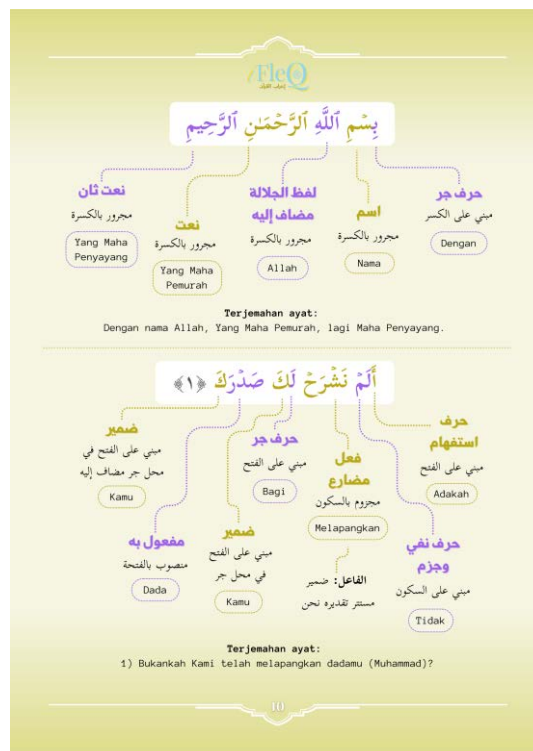 iFleQ
إعراب القرآن
بِسْمِ ٱللَّهِ ٱلرَّحْمَـٰنِ ٱلرَّحِيمِ
حرف جر
مبني على الكسر
Dengan
اسم
مجرور بالكسرة
Nama
لفظ الجلالة
مضاف إليه
مجرور بالكسرة
Allah
نعت
مجرور بالكسرة
Yang Maha
Pemurah
نعت ثان
مجرور بالكسرة
Yang Maha
Penyayang
Terjemahan ayat:
Dengan nama Allah, Yang Maha Pemurah, lagi Maha Penyayang.
أَلَمْ نَشْرَحْ لَكَ صَدْرَكَ ﴿١﴾
حرف
استفهام
مبني على الفتح
Adakah
حرف نفي
وجزم
مبني على السكون
Tidak
فعل
مضارع
مجزوم بالسكون
Melapangkan
الفاعل: ضمير
مستتر تقديره نحن
حرف جر
مبني على الفتح
Bagi
ضمير
مبني على الفتح
في محل جر
Kamu
مفعول به
منصوب بالفتحة
Dada
ضمير
مبني على الفتح في
محل جر مضاف إليه
Kamu
Terjemahan ayat:
1) Bukankah Kami telah melapangkan dadamu (Muhammad)?
10